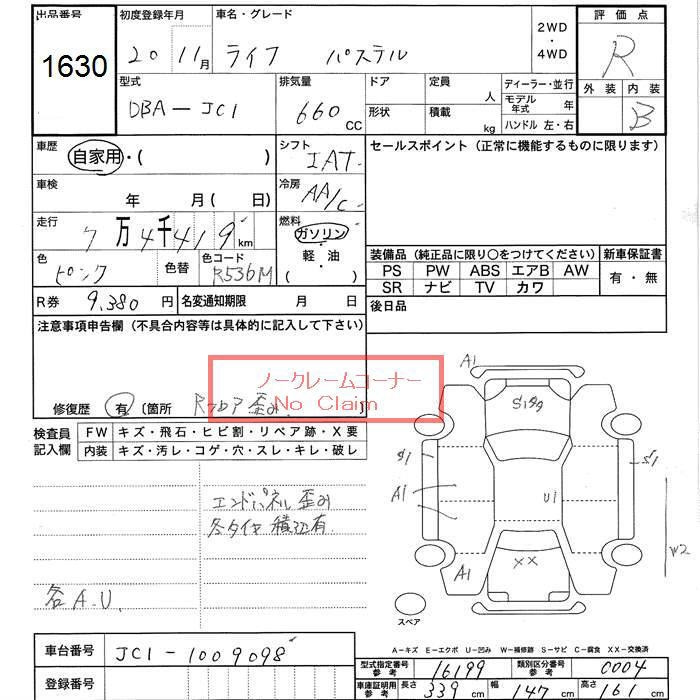 出品番号
1630
初度登録年月
20 11月
車名・グレード
ライフ パステル
2WD
・
4WD
評価点
R
外装 内装
B
型式
DBA-JC1
排気量
660 CC
ドア
形状
定員
人
積載
kg
ディーラー・並行
モデル年式 年
ハンドル 左・右
車歴
自家用・( )
シフト
IAT
車検
年 月( 日)
冷房
AA/C
走行
7万4千419km
燃料
ガソリン・
軽・油
( )
色
ピンク
色替
色コード
R536M
R券 9,380円
名変通知期限 月 日
セールスポイント(正常に機能するものに限ります)
装備品(純正品に限り○をつけてください)
PS PW ABS エアB AW
SR ナビ TV カワ
新車保証書
有・無
後日品
注意事項申告欄(不具合内容等は具体的に記入して下さい)
ノークレームコーナー
No Claim
修復歴 有 〔箇所 歪み 〕
検査員記入欄
FW キズ・飛石・ヒビ割・リペア跡・X要
内装 キズ・汚レ・コゲ・穴・スレ・キレ・破レ
エンドパネル歪み
冬タイヤ積込有
各A.U.
A1
S199
S1
A1
U1
S1
W2
A1
XX
スペア
A-キズ E-エクボ U-凹み W-補修跡 S-サビ C-腐食 XX-交換済
車台番号 JC1-1009098
登録番号
型式指定番号 参考 16199
類別区分番号 参考 0004
車庫証明用 参考 長さ 339cm 幅 147cm 高さ 161cm